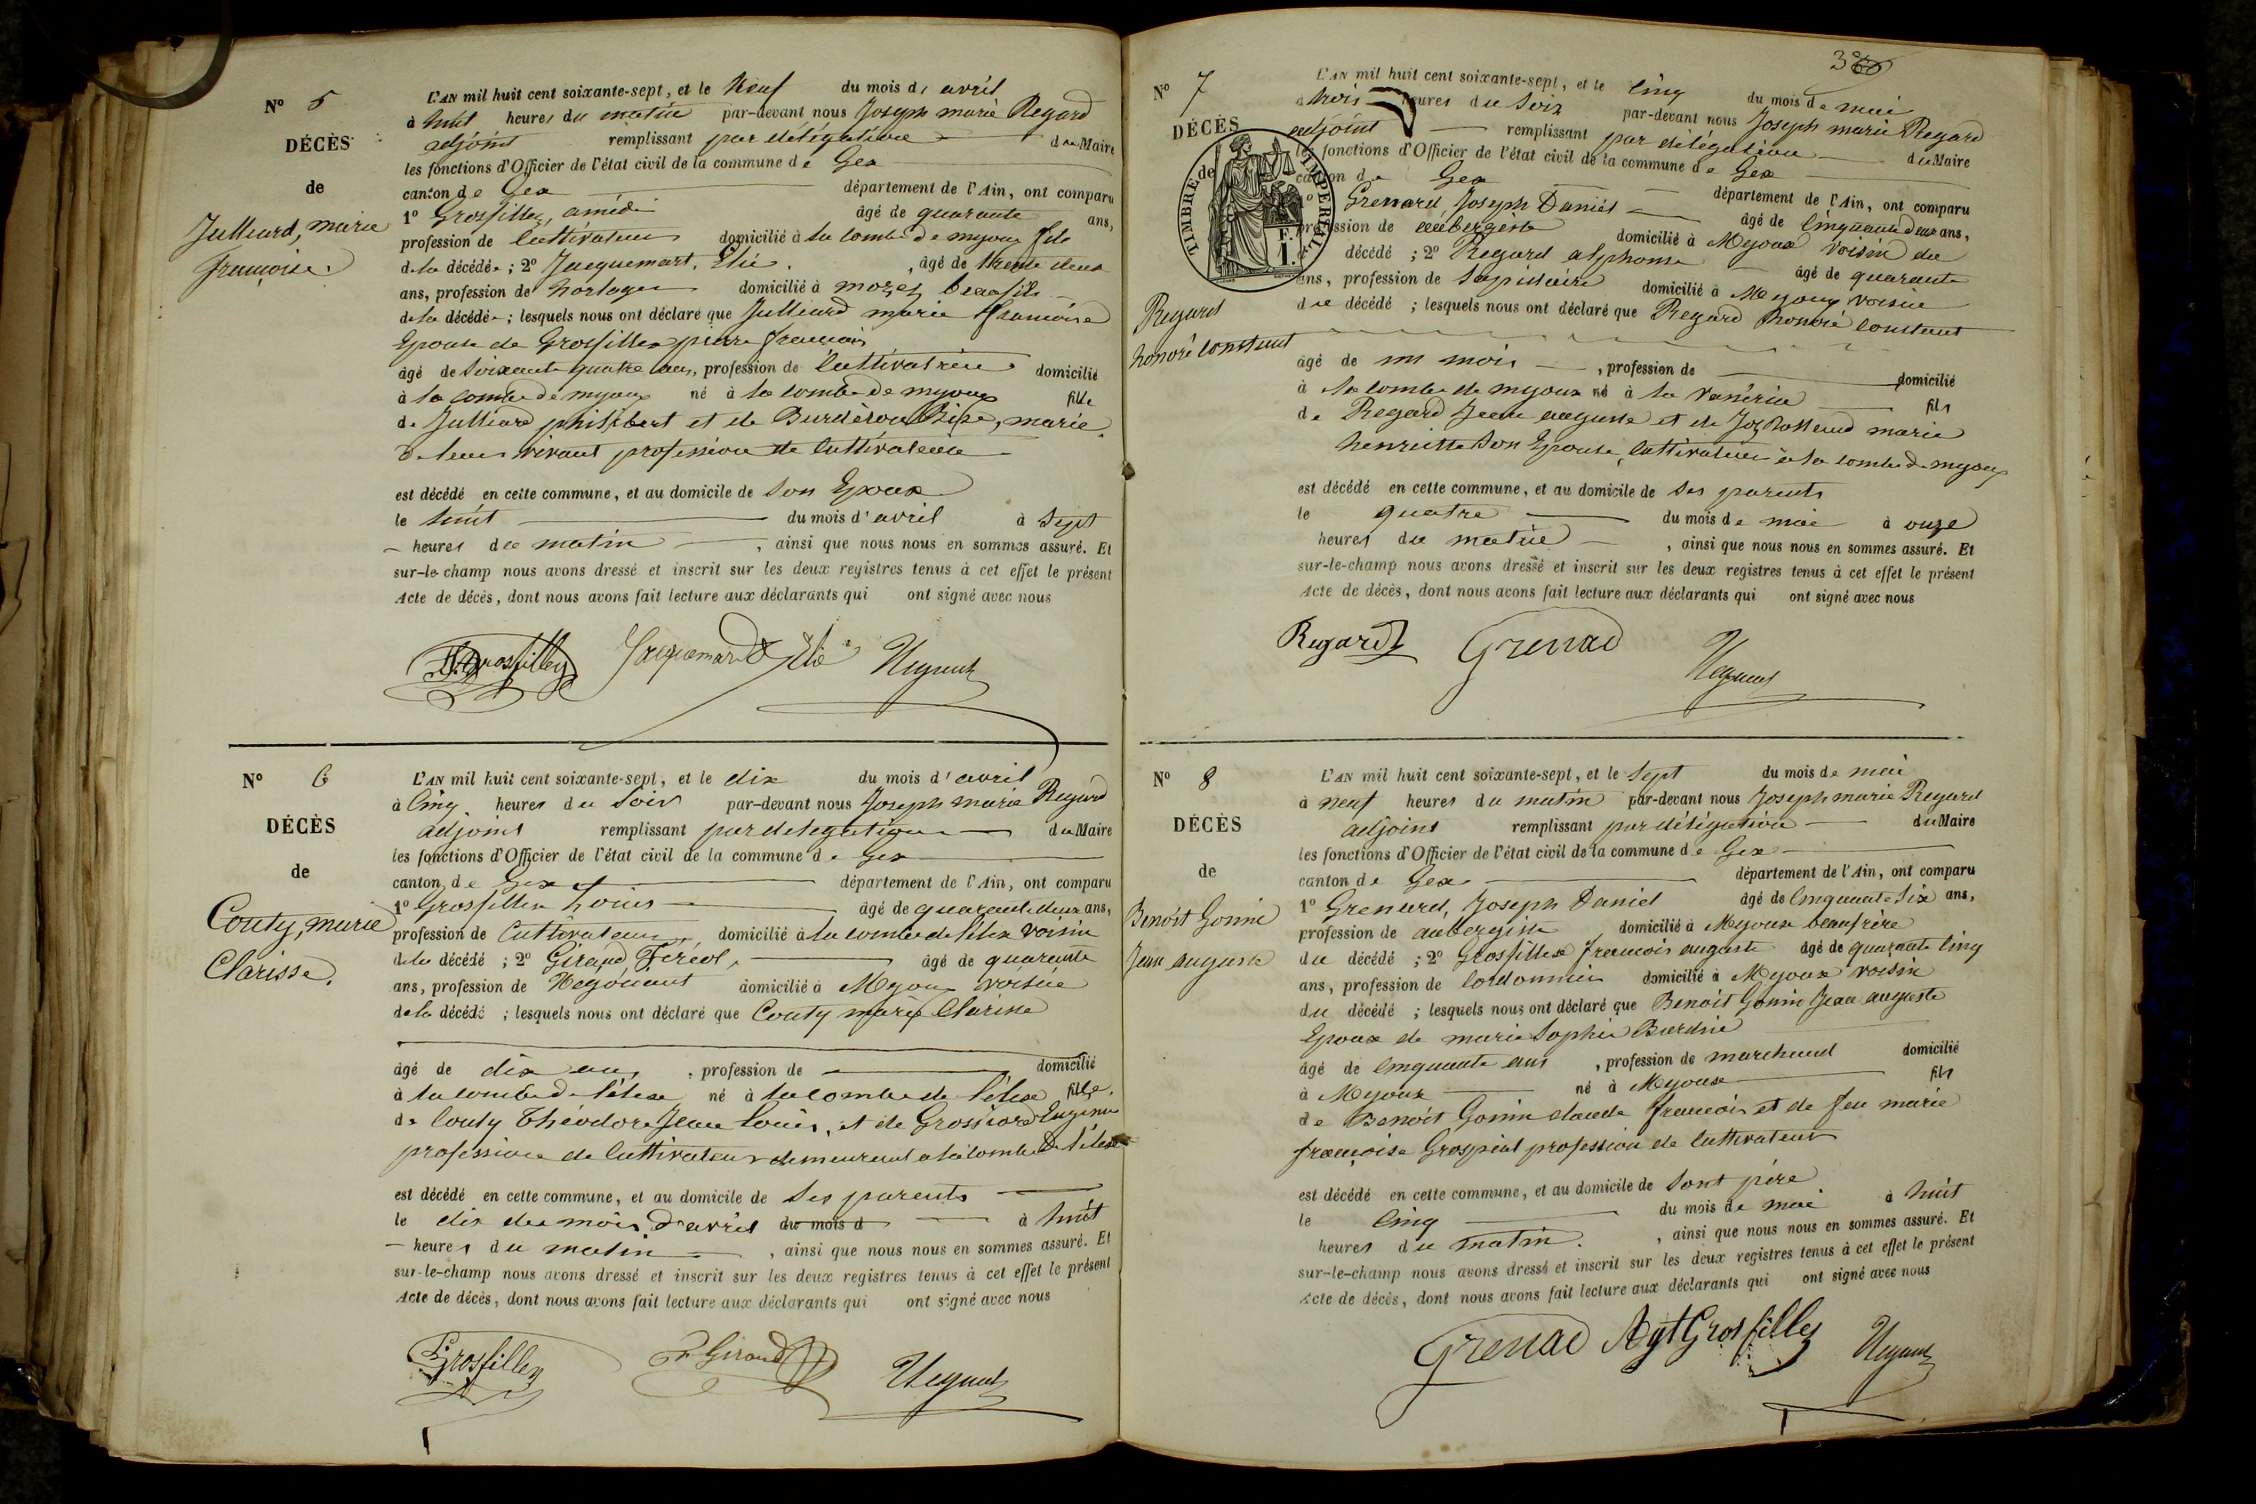 N° 5
DÉCÈS
de
Julliard, marie
françoise.
L'AN mil huit cent soixante-sept, et le Neuf du mois d'avril
à huit heures du matin par-devant nous Joseph marie Regard
adjoint remplissant par délégation du Maire
les fonctions d'Officier de l'état civil de la commune de Gex
canton de Gex département de l'Ain, ont comparu
1° Grosfillex, amédé âgé de quarante ans,
profession de Cultivateur domicilié à la combe de myoux fils
de la décédée; 2° Jacquemart, Elie, âgé de trente deux
ans, profession de horloger domicilié à morez beaufils
de la décédée; lesquels nous ont déclaré que Julliard marie françoise
Epouse de Grosfillex pierre françois
âgé de soixante quatre ans, profession de Cultivatrice domicilié
à la combe de myoux né à la combe de myoux fille
de Julliard philibert et de Burderon Bise, marie.
de leurs vivant profession de Cultivateurs
est décédé en cette commune, et au domicile de son Epoux
le huit du mois d'avril à sept
heures du matin, ainsi que nous nous en sommes assuré. Et
sur-le-champ nous avons dressé et inscrit sur les deux registres tenus à cet effet le présent
Acte de décès, dont nous avons fait lecture aux déclarants qui ont signé avec nous
Grosfilley Jacquemard Elie Regard
N° 6
DÉCÈS
de
Couty, marie
Clarisse.
L'AN mil huit cent soixante-sept, et le dix du mois d'avril
à Cinq heures du soir par-devant nous Joseph marie Regard
adjoint remplissant par delegation du Maire
les fonctions d'Officier de l'état civil de la commune de Gex
canton de Gex département de l'Ain, ont comparu
1° Grosfillex Louis âgé de quarante deux ans,
profession de Cultivateur, domicilié à la combe de l'élex voisin
de la décédé; 2° Girard Féréol, âgé de quarante
ans, profession de Négociant domicilié à Myoux voisin
de la décédé; lesquels nous ont déclaré que Couty marie Clarisse
âgé de dix ans, profession de domicilié
à la combe de l'élex né à la combe de l'élex fille.
de Couty Théodore Jean Louis, et de Grossiord Eugénie
profession de Cultivateur demeurant a la combe de l'élex
est décédé en cette commune, et au domicile de ses parents
le dix du mois d'avril du mois d à huit
heures du matin, ainsi que nous nous en sommes assuré. Et
sur-le-champ nous avons dressé et inscrit sur les deux registres tenus à cet effet le présent
Acte de décès, dont nous avons fait lecture aux déclarants qui ont signé avec nous
Grosfilley F. Giraud Regard
N° 7
DÉCÈS
de
TIMBRE IMPÉRIAL
F.
1.
Regard
honoré constant
L'AN mil huit cent soixante-sept, et le Cinq du mois de mai
à trois heures du soir par-devant nous Joseph marie Regard
adjoint remplissant par délégation du Maire
les fonctions d'Officier de l'état civil de la commune de Gex
canton de Gex département de l'Ain, ont comparu
1° Grenard Joseph Daniel âgé de Cinquante deux ans,
profession de aubergiste domicilié à Myoux voisin du
décédé; 2° Regard alphonse âgé de quarante
ans, profession de lapidaire domicilié à Myoux voisin
du décédé; lesquels nous ont déclaré que Regard honoré Constant
âgé de un mois, profession de domicilié
à la combe de myoux né à la fils
de Regard Jean auguste et de marie
henriette Son Epouse, Cultivateur à la combe de myoux
est décédé en cette commune, et au domicile de ses parents
le quatre du mois de mai à onze
heures du matin, ainsi que nous nous en sommes assuré. Et
sur-le-champ nous avons dressé et inscrit sur les deux registres tenus à cet effet le présent
Acte de décès, dont nous avons fait lecture aux déclarants qui ont signé avec nous
Regard Grenad Regard
N° 8
DÉCÈS
de
Benoit Gonin
Jean auguste
L'AN mil huit cent soixante-sept, et le sept du mois de mai
à neuf heures du matin par-devant nous Joseph marie Regard
adjoint remplissant par délégation du Maire
les fonctions d'Officier de l'état civil de la commune de Gex
canton de Gex département de l'Ain, ont comparu
1° Grenard, Joseph Daniel âgé de Cinquante six ans,
profession de aubergiste domicilié à Myoux beaufrère
du décédé; 2° Grosfillex francois auguste âgé de quarante cinq
ans, profession de Cordonnier domicilié à Myoux voisin
du décédé; lesquels nous ont déclaré que Benoit Gonin Jean auguste
Epoux de marie Sophie Burdin
âgé de Cinquante ans, profession de marchand domicilié
à Myoux né à Myoux fils
de Benoit Gonin claude francois et de feu marie
françoise Grospiat profession de Cultivateur
est décédé en cette commune, et au domicile de sont père
le Cinq du mois de mai à huit
heures du matin, ainsi que nous nous en sommes assuré. Et
sur-le-champ nous avons dressé et inscrit sur les deux registres tenus à cet effet le présent
Acte de décès, dont nous avons fait lecture aux déclarants qui ont signé avec nous
Grenad Agt Grosfilley Regard